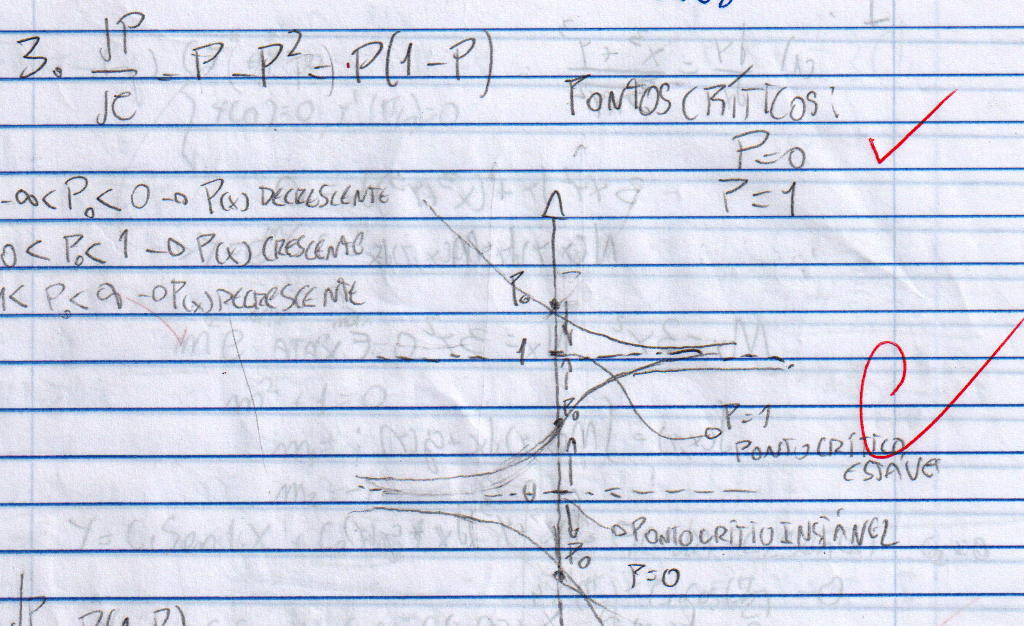 3. dP/dt = P - P² = P(1 - P)
PONTOS CRÍTICOS:
P=0
P=1
-∞ < P₀ < 0 → P(x) DECRESCENTE
0 < P₀ < 1 → P(x) CRESCENTE
1 < P₀ < ∞ → P(x) DECRESCENTE
P₀
1
P₀
P=1
PONTO CRÍTICO
ESTÁVEL
0
PONTO CRÍTIO INSTÁVEL
P₀
P=0